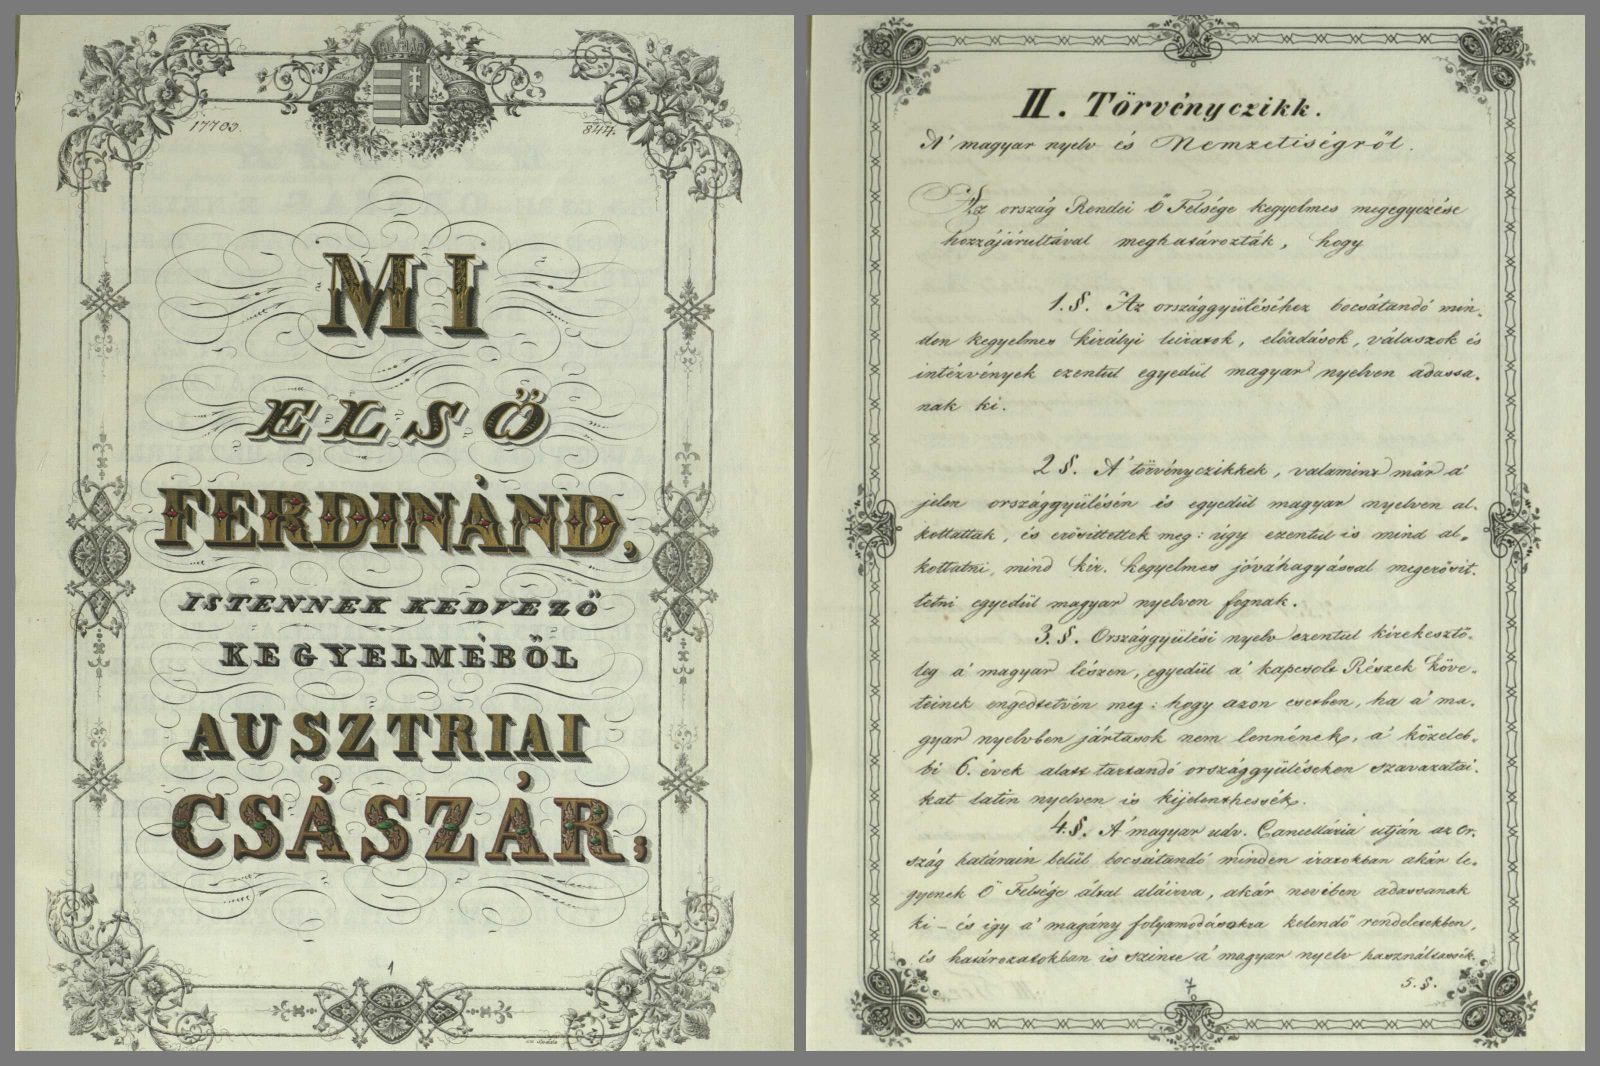 17703.
844.
MI
ELSŐ
FERDINÁND,
ISTENNEK KEDVEZŐ
KEGYELMÉBŐL
AUSZTRIAI
CSÁSZÁR;
1
II. Törvényczikk.
A' magyar nyelv és Nemzetiségről.
Az ország Rendei Ő Felsége kegyelmes megegyezése
hozzájárultával meghatározták, hogy
1. §. Az országgyűléséhez bocsátandó min-
den kegyelmes királyi leiratok, előadások, válaszok és
intézvények ezentul egyedül magyar nyelven adassa-
nak ki.
2 §. A' törvényczikkek, valamint már a'
jelen országgyülésén is egyedül magyar nyelven al-
kottattak, és erősittettek meg: úgy ezentul is mind al-
kottatni, mind kir. kegyelmes jóváhagyással megerősit-
tetni egyedül magyar nyelven fognak.
3. §. Országgyülési nyelv ezentul kirekesztő-
leg a' magyar lészen, egyedül a' kapcsolt Részek köve-
teinek engedtetvén meg: hogy azon esetben, ha a' ma-
gyar nyelvben jártasok nem lennének, a' közeleb-
bi 6. évek alatt tartandó országgyüléseken szavazatai-
kat latin nyelven is kijelenthessék.
4. §. A' magyar udv. Cancellária utján az or-
szág határain belül bocsátandó minden iratokban akár le-
gyenek Ő Felsége által aláirva, akár nevében adassanak
ki – és igy a' magány folyamodásokra kelendő rendeletekben,
és határozatokban is szinte a' magyar nyelv használtassék.
7
5. §.